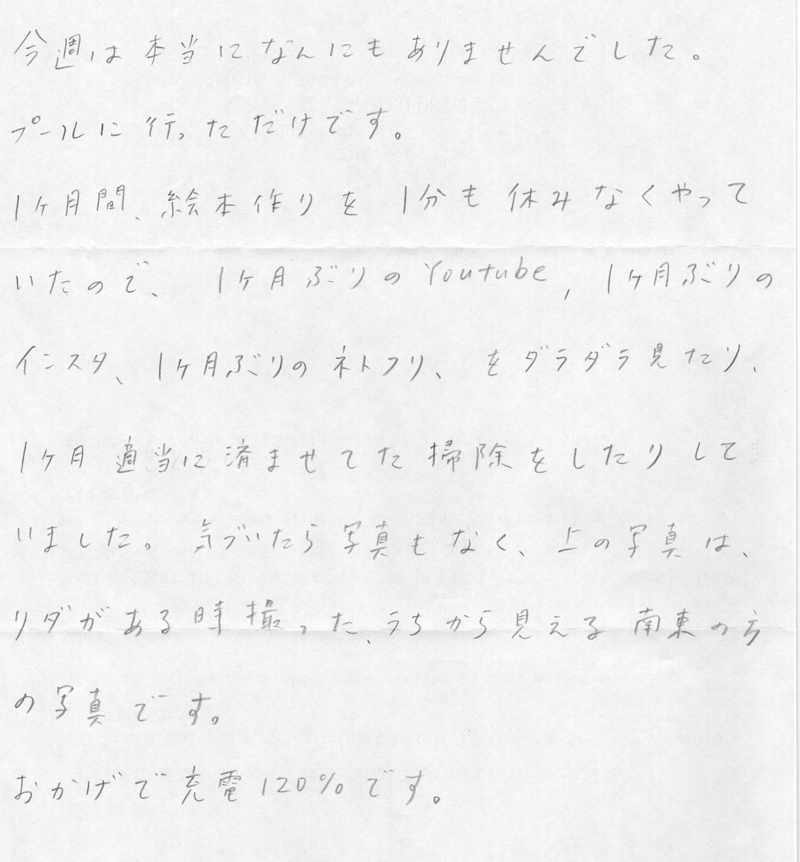 今週は本当になんにもありませんでした。
プールに行っただけです。
1ヶ月間、絵本作りを1分も休みなくやって
いたので、1ヶ月ぶりのYoutube, 1ヶ月ぶりの
インスタ、1ヶ月ぶりのネトフリ、をダラダラ見たり、
1ヶ月適当に済ませてた掃除をしたりして
いました。気づいたら写真もなく、上の写真は、
リダがある時撮った、うちから見える南東の方
の写真です。
おかげで充電120%です。